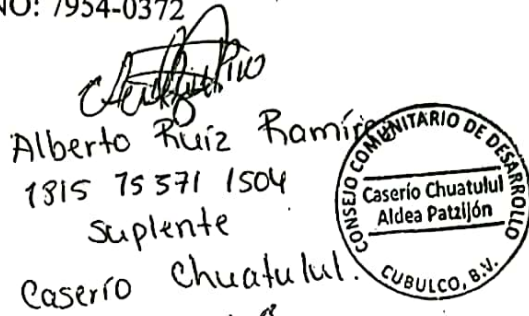 NO: 7954-0372
Alberto Ruiz Ramírez
1815 75 571 1504
Suplente
Caserío Chuatulul.
CONSEJO COMUNITARIO DE DESARROLLO
Caserío Chuatulul
Aldea Patzijón
CUBULCO, B.V.